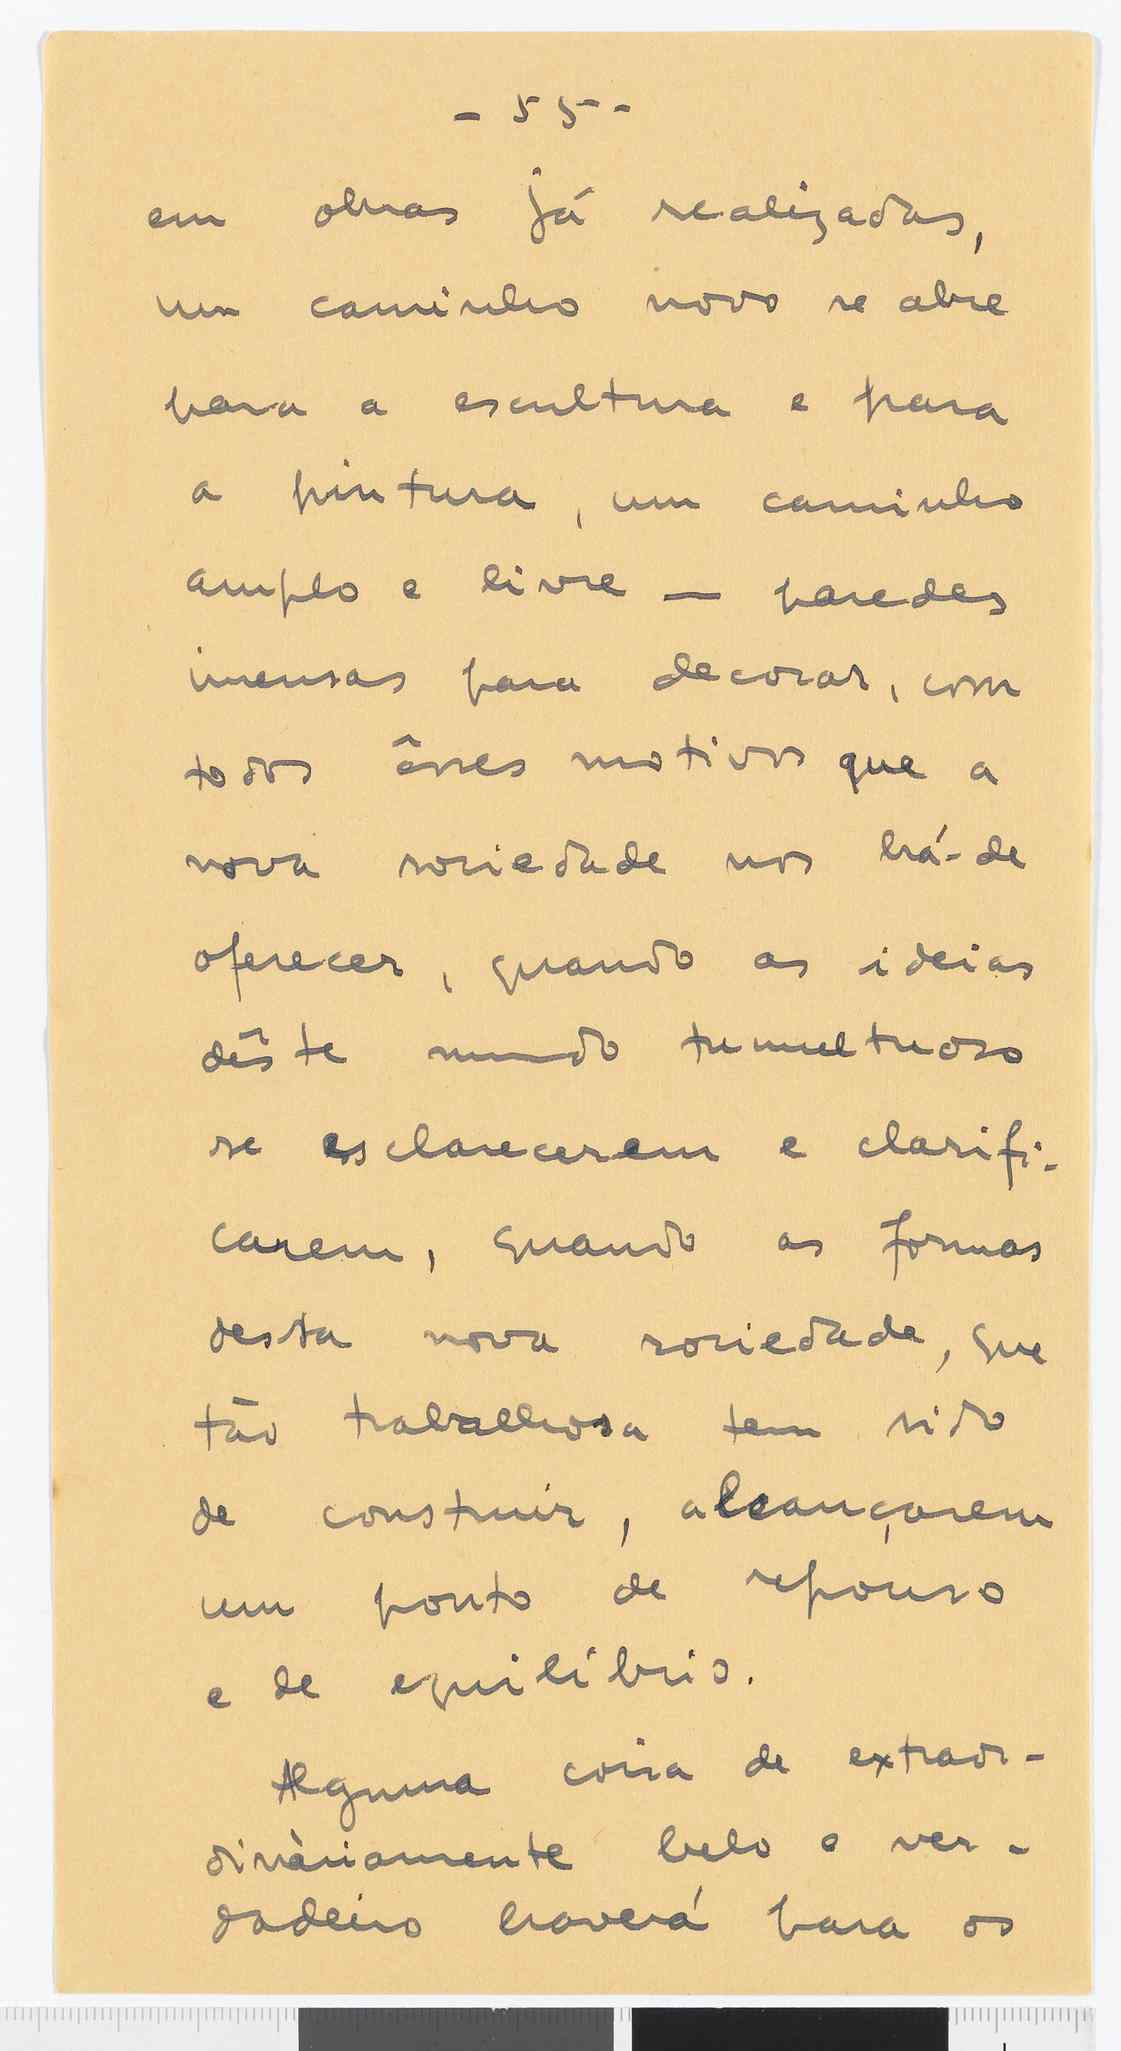 - 55 -
em obras já realizadas,
um caminho novo se abre
para a escultura e para
a pintura, um caminho
amplo e livre — paredes
imensas para decorar, com
todos êsses motivos que a
nova sociedade nos há-de
oferecer, quando as ideias
dêste mundo tumultuoso
se esclarecerem e clarifi-
carem, quando as formas
desta nova sociedade, que
tão trabalhosa tem sido
de construir, alcançarem
um ponto de repouso
e de equilíbrio.
Alguma coisa de extraor-
dinàriamente belo e ver-
dadeiro haverá para os